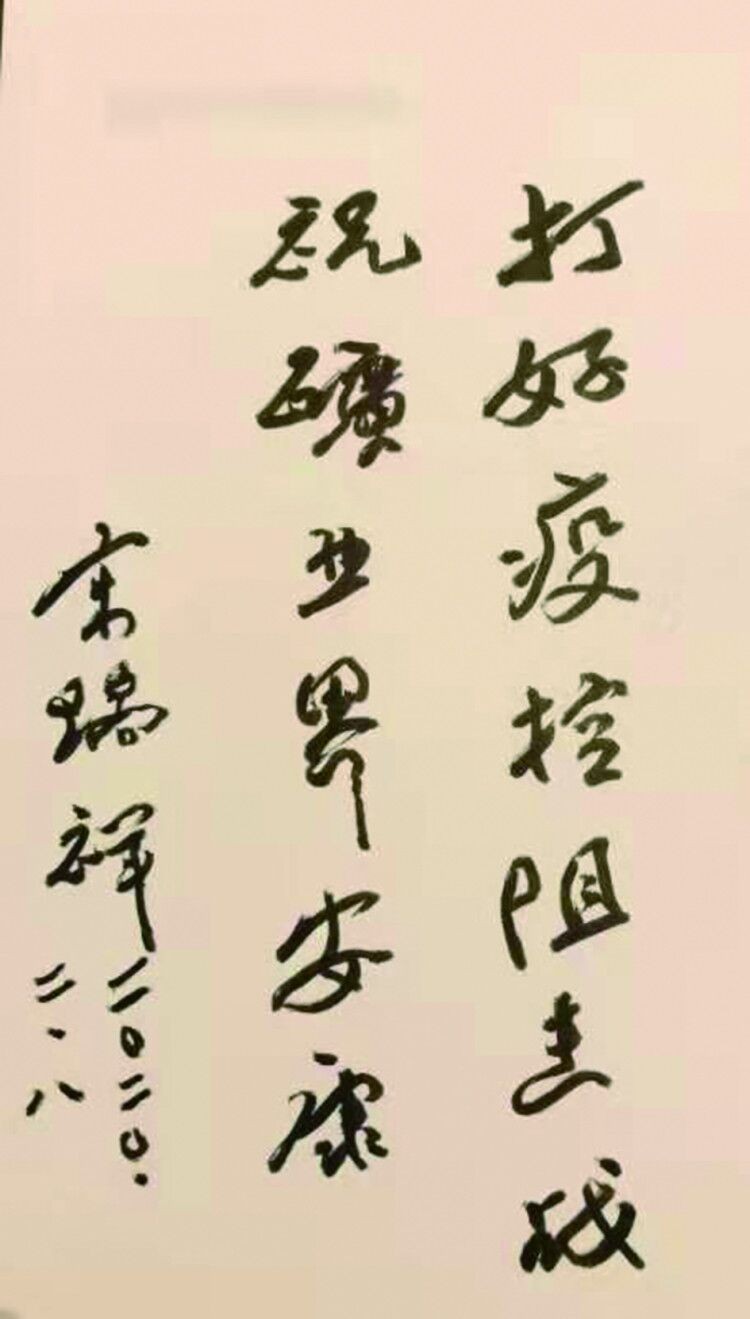 打好疫控阻击战
祝礦业界安康
宋瑞祥
二〇二〇.
二.八